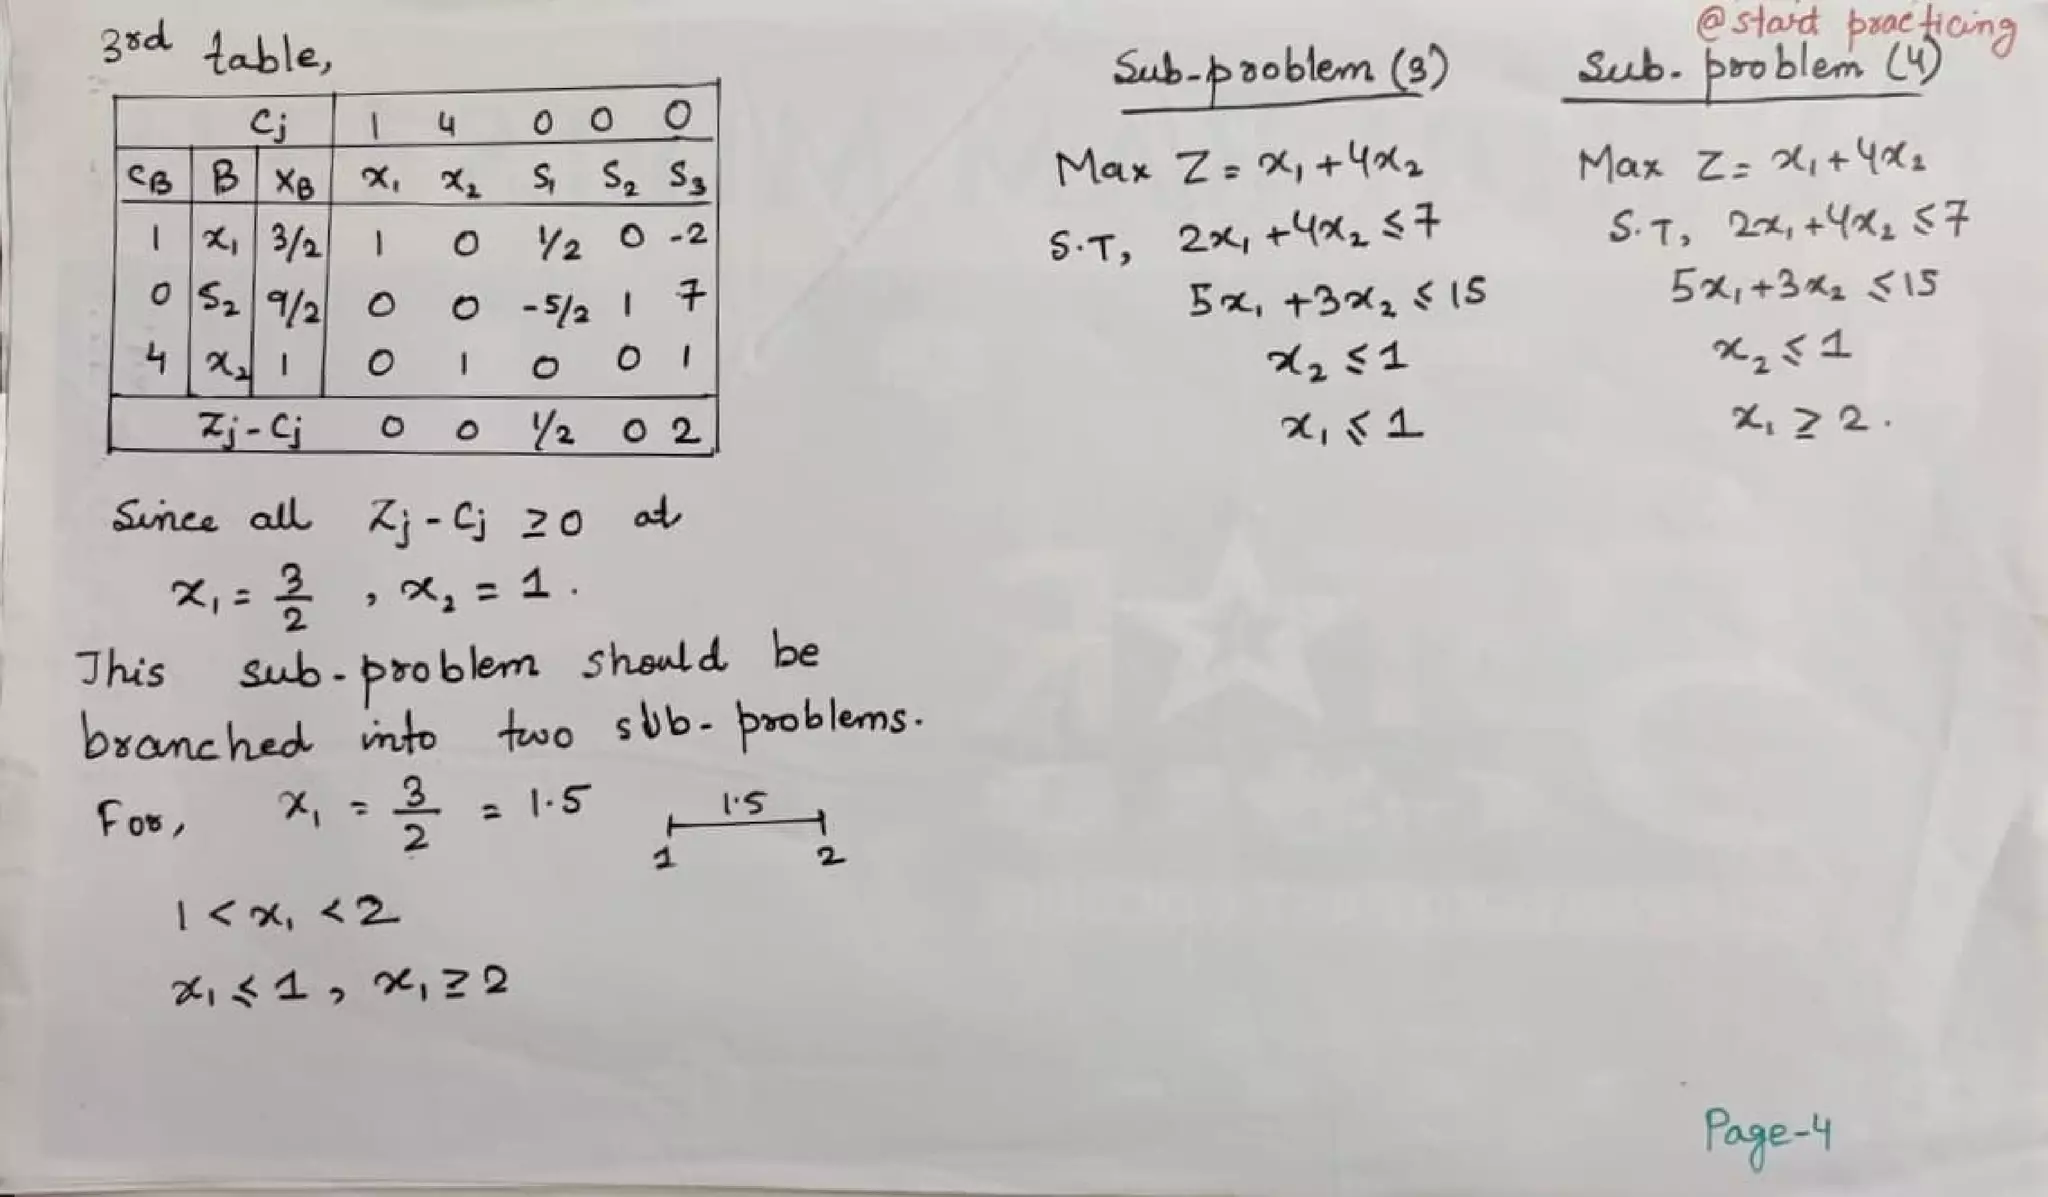 @start practicing
3rd table,
Cj 1 4 0 0 0
CB B XB x₁ x₂ S₁ S₂ S₃
1 x₁ 3/2 1 0 1/2 0 -2
0 S₂ 9/2 0 0 -5/2 1 7
4 x₂ 1 0 1 0 0 1
Zj-Cj 0 0 1/2 0 2
Since all Zj - Cj ≥ 0 at
x₁ = 3/2 , x₂ = 1 .
This sub-problem should be
branched into two sub-problems.
For, x₁ = 3/2 = 1.5
1.5
1 2
1 < x₁ < 2
x₁ ≤ 1 , x₁ ≥ 2
Sub-problem (3)
Max Z = x₁ + 4x₂
S.T, 2x₁ + 4x₂ ≤ 7
5x₁ + 3x₂ ≤ 15
x₂ ≤ 1
x₁ ≤ 1
Sub-problem (4)
Max Z = x₁ + 4x₂
S.T, 2x₁ + 4x₂ ≤ 7
5x₁ + 3x₂ ≤ 15
x₂ ≤ 1
x₁ ≥ 2 .
Page-4